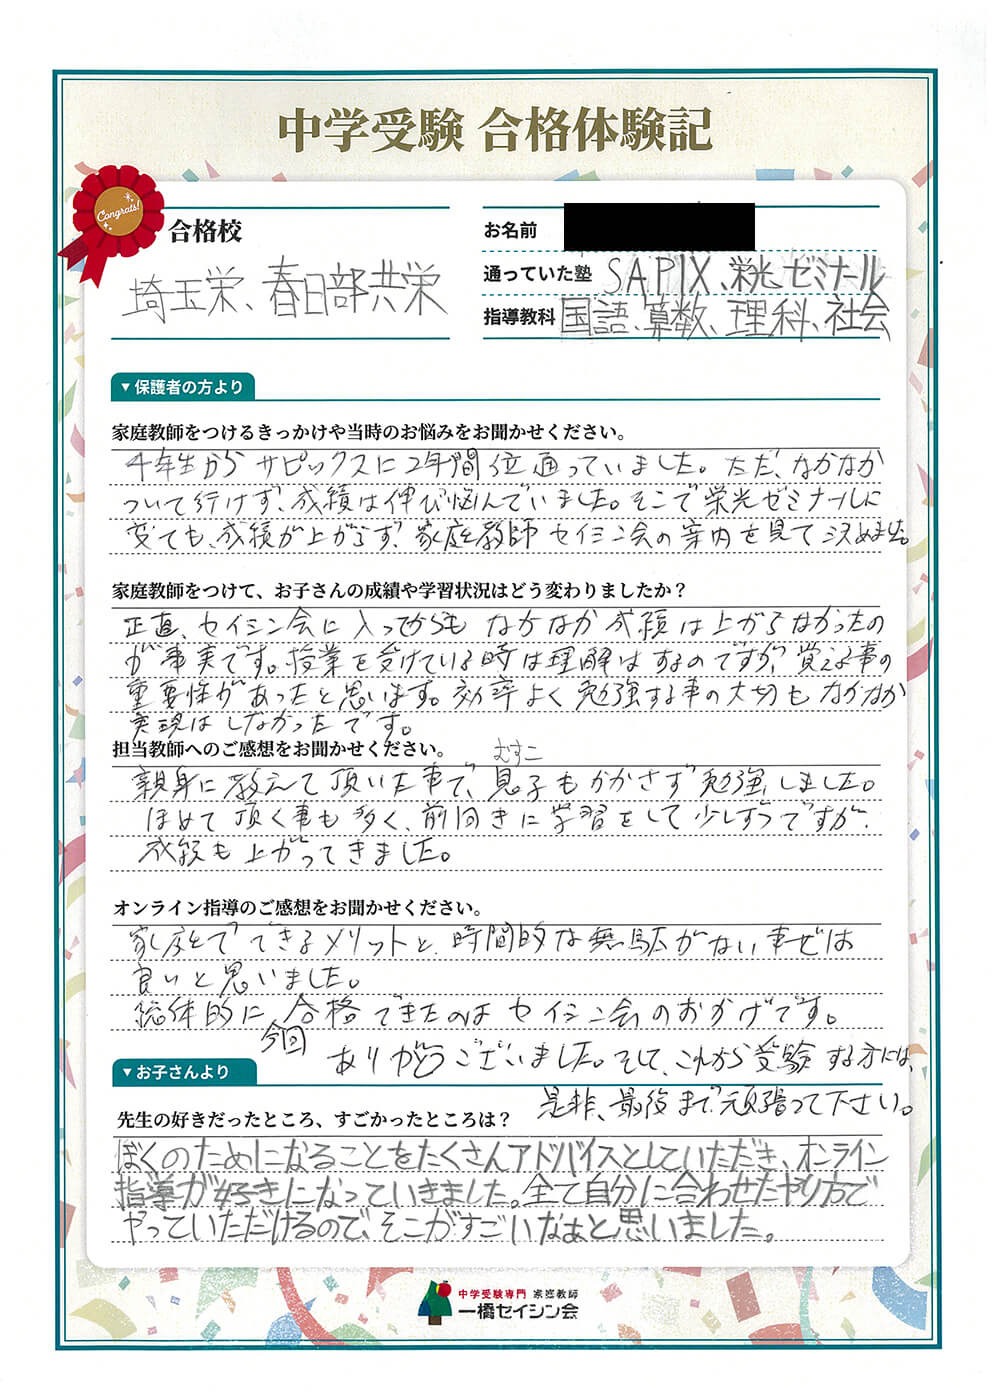 中学受験 合格体験記
Congrats!
合格校
埼玉栄、春日部共栄
お名前
通っていた塾 SAPIX、栄光ゼミナール
指導教科 国語、算数、理科、社会
▼保護者の方より
家庭教師をつけるきっかけや当時のお悩みをお聞かせください。
4年生からサピックスに2年間位通っていました。ただ、なかなか
ついて行けず、成績は伸び悩んでいました。そこで栄光ゼミナールに
変ても、成績が上がらず、家庭教師セイシン会の案内を見て決めました。
家庭教師をつけて、お子さんの成績や学習状況はどう変わりましたか？
正直、セイシン会に入ってからもなかなか成績は上がらなかったの
が事実です。授業を受けている時は理解はするのですが、覚える事の
重要性があったと思います。効率よく勉強する事の大切もなかなか
実現はしなかったです。
担当教師へのご感想をお聞かせください。
むすこ
親身に教えて頂いた事で、息子もかかさず勉強しました。
ほめて頂く事も多く、前向きに学習をして少しずつですが、
成績も上がってきました。
オンライン指導のご感想をお聞かせください。
家庭でできるメリットと、時間的な無駄がない事では
良いと思いました。
総体的に合格できたのはセイシン会のおかげです。
今回
ありがとうございました。そして、これから受験する方には、
是非、最後まで頑張って下さい。
▼お子さんより
先生の好きだったところ、すごかったところは？
ぼくのためになることをたくさんアドバイスとしていただき、オンライン
指導が好きになっていきました。全て自分に合わせたやり方で
やっていただけるので、そこがすごいなぁと思いました。
中学受験専門 家庭教師
一橋セイシン会